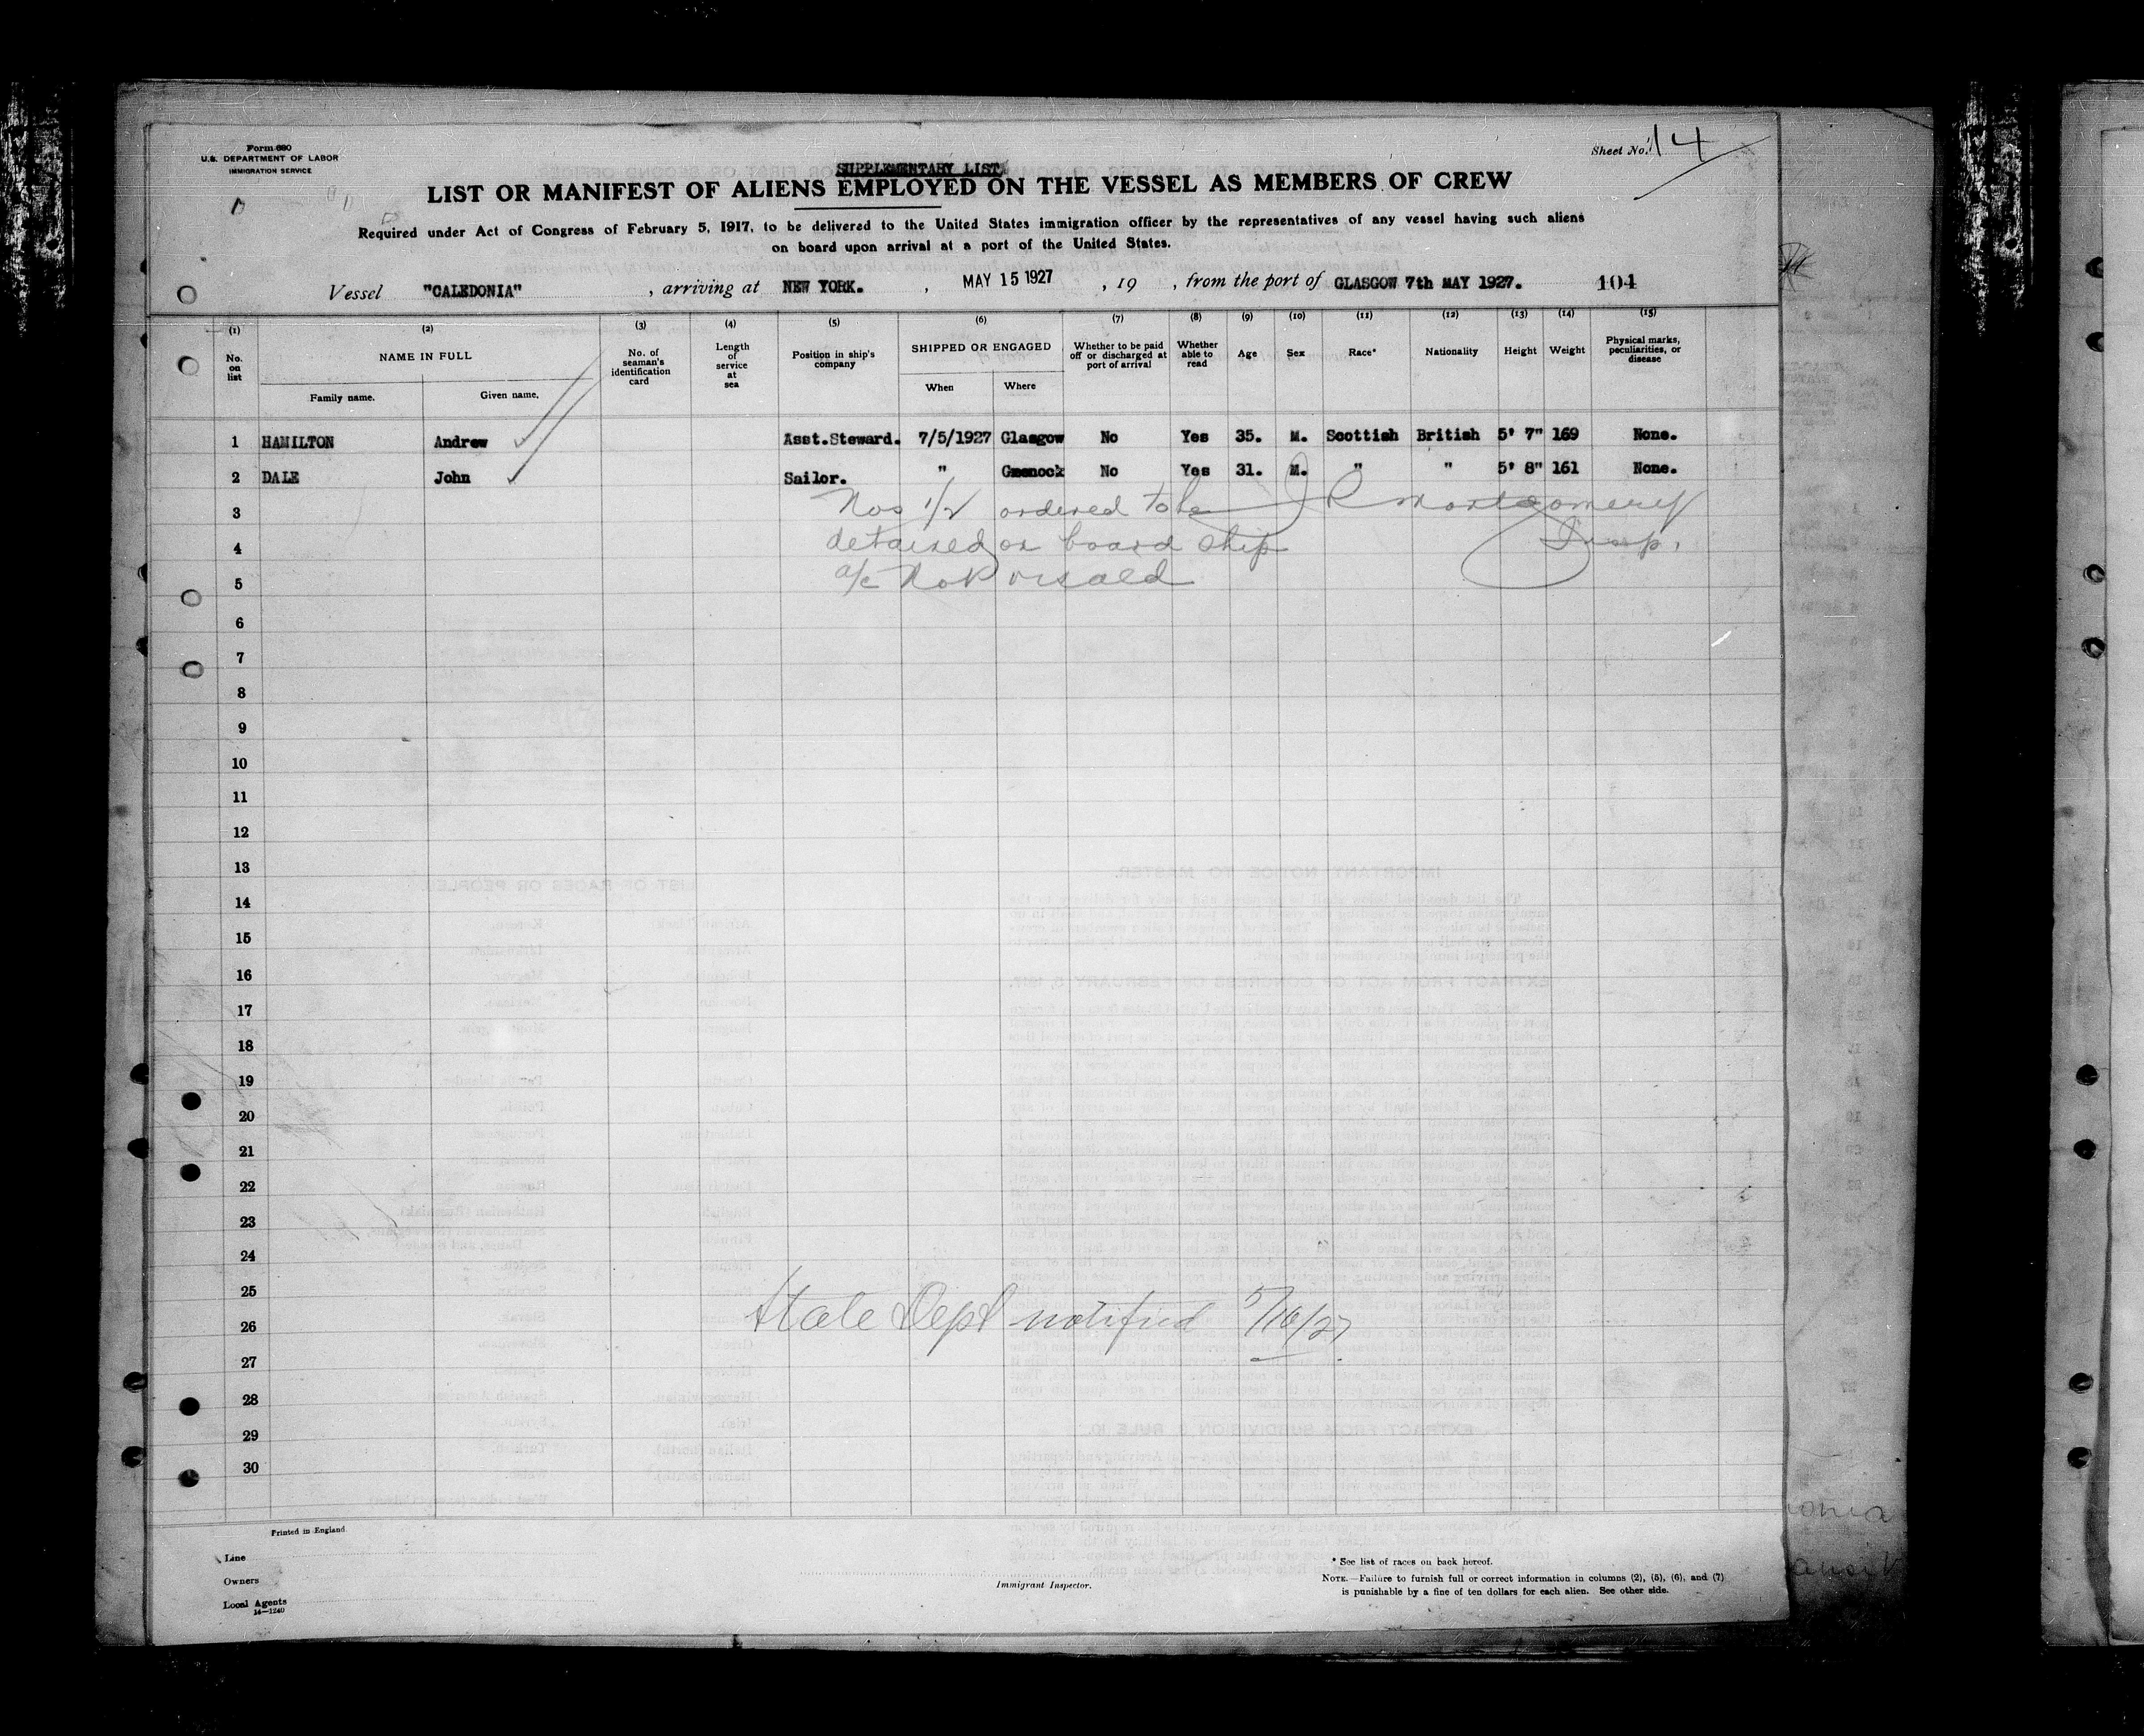 Form 680
U.S. DEPARTMENT OF LABOR
IMMIGRATION SERVICE
Sheet No. 14
SUPPLEMENTARY LIST
LIST OR MANIFEST OF ALIENS EMPLOYED ON THE VESSEL AS MEMBERS OF CREW
Required under Act of Congress of February 5, 1917, to be delivered to the United States immigration officer by the representatives of any vessel having such aliens
on board upon arrival at a port of the United States.
Vessel "CALEDONIA" , arriving at NEW YORK. , MAY 15 1927 , 19 , from the port of GLASGOW 7th MAY 1927. 104
(1) (2) (3) (4) (5) (6) (7) (8) (9) (10) (11) (12) (13) (14) (15)
No. on list NAME IN FULL Family name. Given name. No. of seaman's identification card Length of service at sea Position in ship's company SHIPPED OR ENGAGED When Where Whether to be paid off or discharged at port of arrival Whether able to read Age Sex Race* Nationality Height Weight Physical marks, peculiarities, or disease
1 HAMILTON Andrew Asst.Steward. 7/5/1927 Glasgow No Yes 35. M. Scottish British 5' 7" 169 None.
2 DALE John Sailor. " Greenock No Yes 31. M. " " 5' 8" 161 None.
3 Nos 1/2 ordered to be J R Montgomery
4 detained on board ship Insp.
5 a/c Not visaed
6
7
8
9
10
11
12
13
14
15
16
17
18
19
20
21
22
23
24
25
26 State Dept notified 5/16/27
27
28
29
30
Printed in England.
Line
Owners
Local Agents
14—1240
Immigrant Inspector.
* See list of races on back hereof.
NOTE.—Failure to furnish full or correct information in columns (2), (5), (6), and (7)
is punishable by a fine of ten dollars for each alien. See other side.